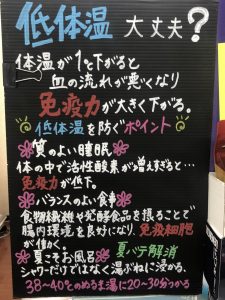 低体温 大丈夫?
体温が1℃下がると
血の流れが悪くなり
免疫力が大きく下がる。
低体温を防ぐポイント
質のよい睡眠
体の中で活性酸素が増えすぎると…
免疫力が低下。
バランスのよい食事
食物繊維や発酵食品を摂ることで
腸内環境を良好になり、免疫細胞
が働く。
夏バテ解消
夏こそお風呂
シャワーだけではなく湯がねに浸かる。
38~40℃のぬるま湯に20~30分つかる